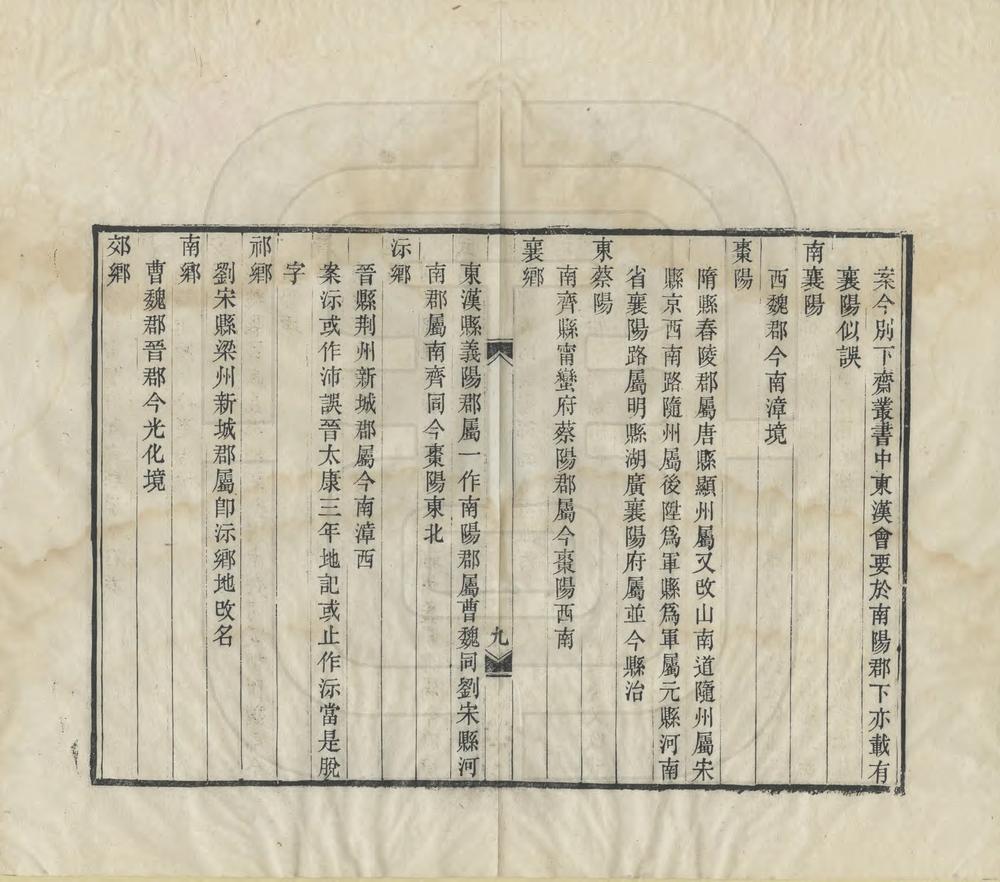 案今別下齋叢書中東漢會要於南陽郡下亦載有
襄陽似誤
南襄陽
西魏郡今南漳境
棗陽
隋縣舂陵郡屬唐縣顯州屬又改山南道隨州屬宋
縣京西南路隨州屬後陞爲軍縣爲軍屬元縣河南
省襄陽路屬明縣湖廣襄陽府屬並今縣治
東蔡陽
南齊縣甯蠻府蔡陽郡屬今棗陽西南
襄鄉
九
東漢縣義陽郡屬一作南陽郡屬曹魏同劉宋縣河
南郡屬南齊同今棗陽東北
沶鄉
晉縣荆州新城郡屬今南漳西
案沶或作沛誤晉太康三年地記或止作沶當是脫
字
祁鄉
劉宋縣梁州新城郡屬卽沶鄉地改名
南鄉
曹魏郡晉郡今光化境
郊鄉